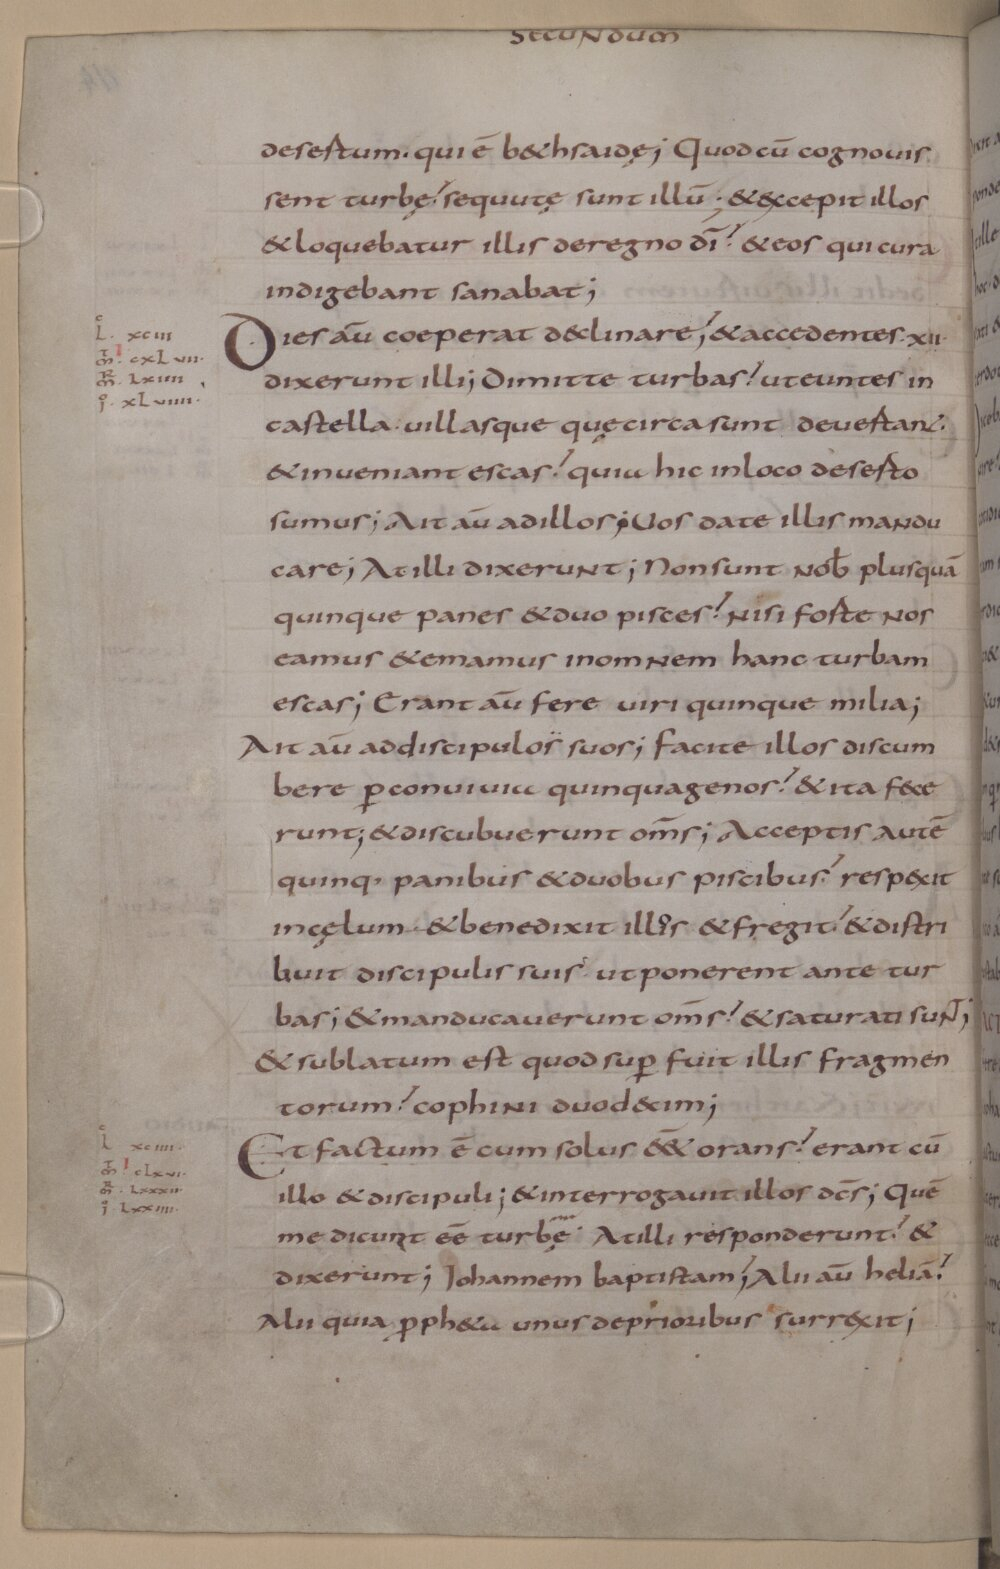 SECUNDUM
desertum· qui ē b&hsaidę; Quod cū cognouis
sent turbę sequutę sunt illū; & excepit illos
& loquebatur illis de regno dī & eos qui cura
indigebant sanabat;
L· xciii
Dies aū coeperat declinare; & accedentes· xii·
m̄· cxLvii·
m̄· Lxiiii
dixerunt illi; Dimitte turbas ut euntes in
i· xLviiii·
castella· uillasque quę circa sunt deuertant·
& inueniant escas quia hic in loco deserto
sumus; Ait aū ad illos; Uos date illis mandu
care; At illi dixerunt; Non sunt nob̄ plusquā
quinque panes & duo pisces nisi forte nos
eamus & emamus in omnem hanc turbam
escas; Erant aū fere uiri quinque milia;
Ait aū ad discipulos suos; facite illos discum
bere ꝑ conuiuia quinquagenos & ita fece
runt; & discubuerunt om̄s; Acceptis autē
quinq· panibus & duobus piscibus respexit
in cęlum & benedixit illis & fregit & distri
buit discipulis suis ut ponerent ante tur
bas; & manducauerunt om̄s & saturati sunt;
& sublatum est quod suꝑ fuit illis fragmen
torum cophini duodecim;
L xciiii·
Et factum ē cum solus ēēt orans erant cū
m̄· cLxvi·
m̄· Lxxxii·
illo & discipuli; & interrogauit illos dc̄s; Quē
i Lxxiiii·
me dicunt ēē turbę At illi responderunt &
dixerunt; Iohannem baptistam; Alii aū heliā
Alii quia ꝓph&a unus de prioribus surrexit;